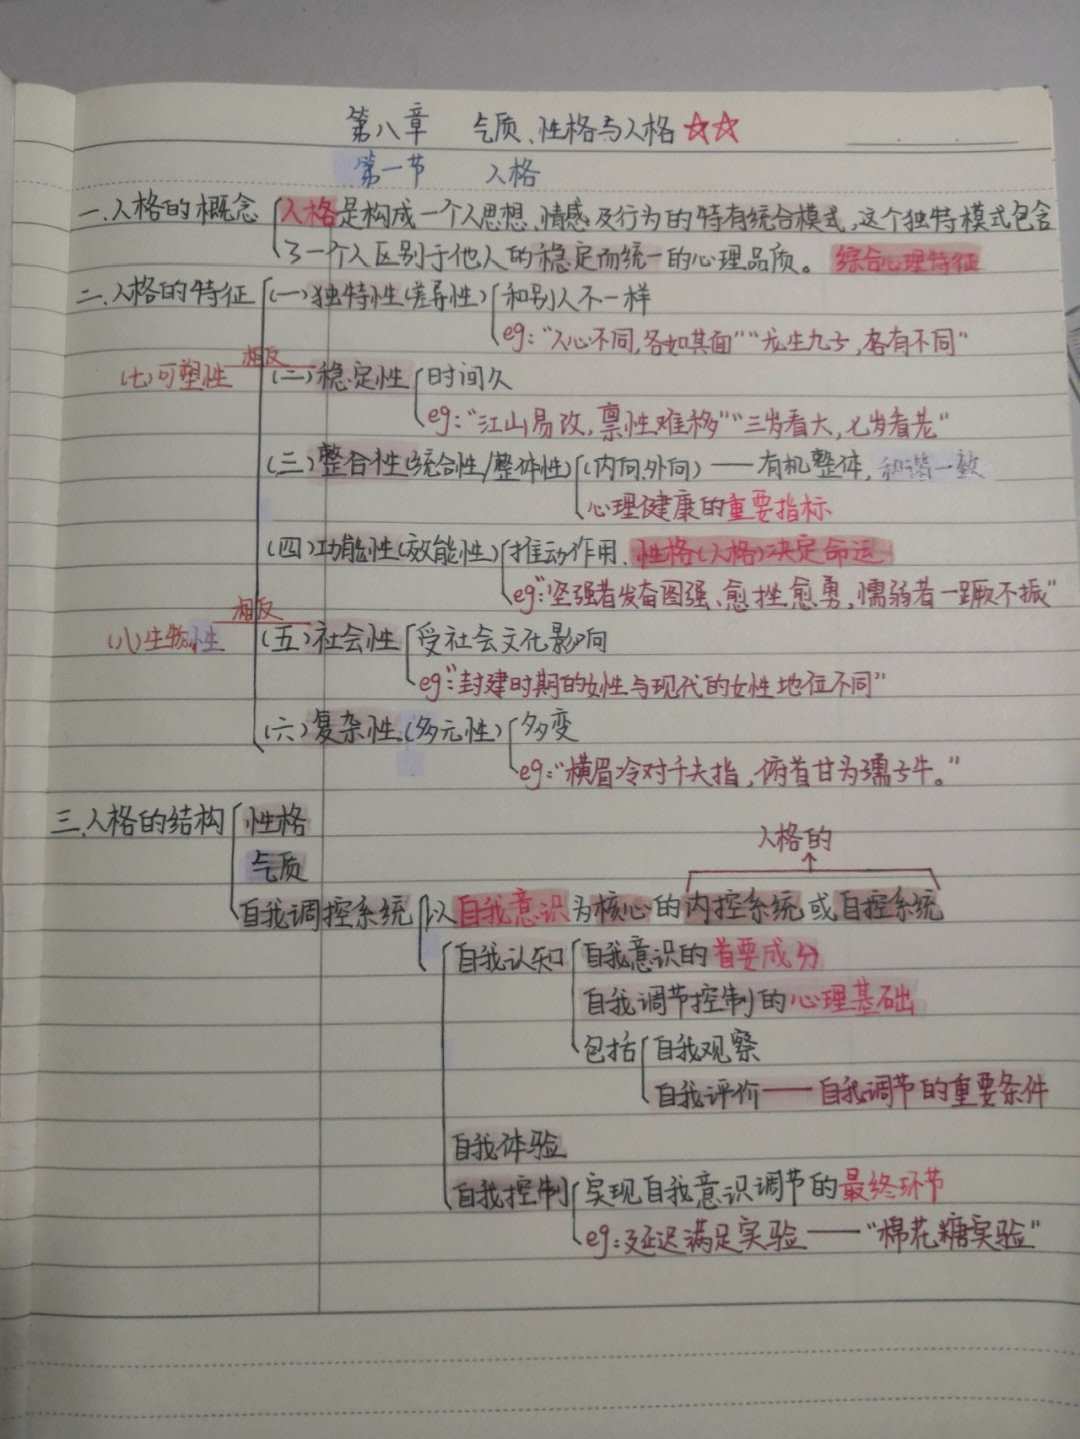 第八章 气质、性格与人格 ☆☆
第一节 人格
一、人格的概念 人格是构成一个人思想、情感及行为的特有统合模式,这个独特模式包含
了一个人区别于他人的稳定而统一的心理品质。 综合心理特征
二、人格的特征 (一)独特性(差异性) 和别人不一样
eg:"人心不同,各如其面""龙生九子,各有不同"
(七)可塑性 相反 (二)稳定性 时间久
eg:"江山易改,禀性难移""三岁看大,七岁看老"
(三)整合性(统合性/整体性) (内向、外向)——有机整体,和谐一致
心理健康的重要指标
(四)功能性(效能性) 推动作用、性格(人格)决定命运
eg:"坚强者发奋图强、愈挫愈勇,懦弱者一蹶不振"
(八)生物性 相反 (五)社会性 受社会文化影响
eg:"封建时期的女性与现代的女性地位不同"
(六)复杂性、(多元性) 多变
eg:"横眉冷对千夫指,俯首甘为孺子牛。"
三、人格的结构 性格
人格的
气质
自我调控系统 以自我意识为核心的内控系统或自控系统
自我认知 自我意识的首要成分
自我调节控制的心理基础
包括 自我观察
自我评价——自我调节的重要条件
自我体验
自我控制 实现自我意识调节的最终环节
eg:延迟满足实验——"棉花糖实验"